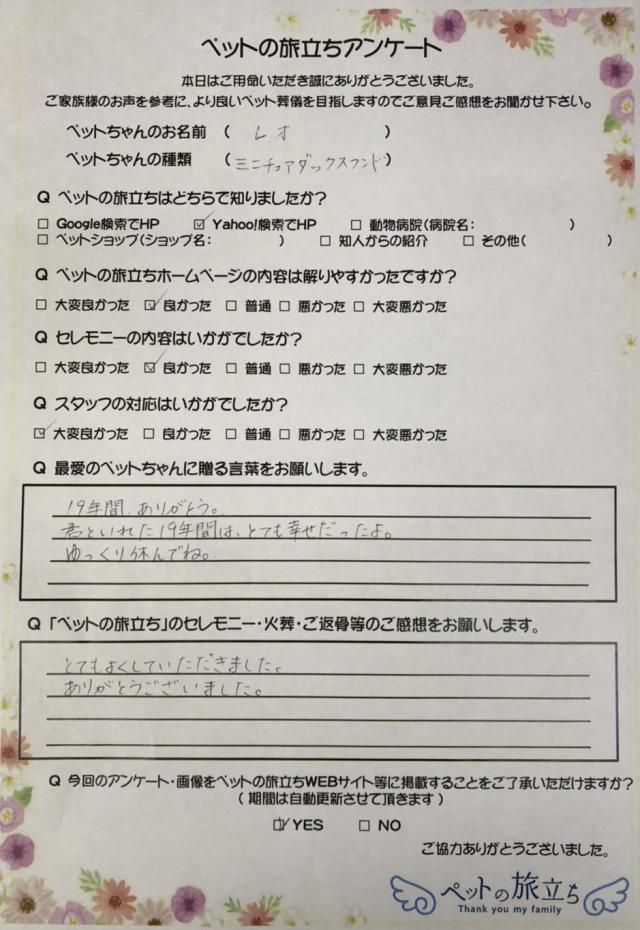 ペットの旅立ちアンケート
本日はご用命いただき誠にありがとうございました。
ご家族様のお声を参考に、より良いペット葬儀を目指しますのでご意見ご感想をお聞かせ下さい。
ペットちゃんのお名前 ( レオ )
ペットちゃんの種類 (ミニチュアダックスフンド)
Q ペットの旅立ちはどちらで知りましたか?
□ Google検索でHP ☑ Yahoo!検索でHP □ 動物病院(病院名: )
□ ペットショップ(ショップ名: ) □ 知人からの紹介 □ その他( )
Q ペットの旅立ちホームページの内容は解りやすかったですか?
□ 大変良かった ☑ 良かった □ 普通 □ 悪かった □ 大変悪かった
Q セレモニーの内容はいかがでしたか?
□ 大変良かった ☑ 良かった □ 普通 □ 悪かった □ 大変悪かった
Q スタッフの対応はいかがでしたか?
☑ 大変良かった □ 良かった □ 普通 □ 悪かった □ 大変悪かった
Q 最愛のペットちゃんに贈る言葉をお願いします。
19年間、ありがとう。
君といれた19年間は、とても幸せだったよ。
ゆっくり休んでね。
Q 「ペットの旅立ち」のセレモニー・火葬・ご返骨等のご感想をお願いします。
とてもよくしていただきました。
ありがとうございました。
Q 今回のアンケート・画像をペットの旅立ちWEBサイト等に掲載することをご了承いただけますか?
( 期間は自動更新させて頂きます )
☑ YES □ NO
ご協力ありがとうございました。
ペットの旅立ち
Thank you my family